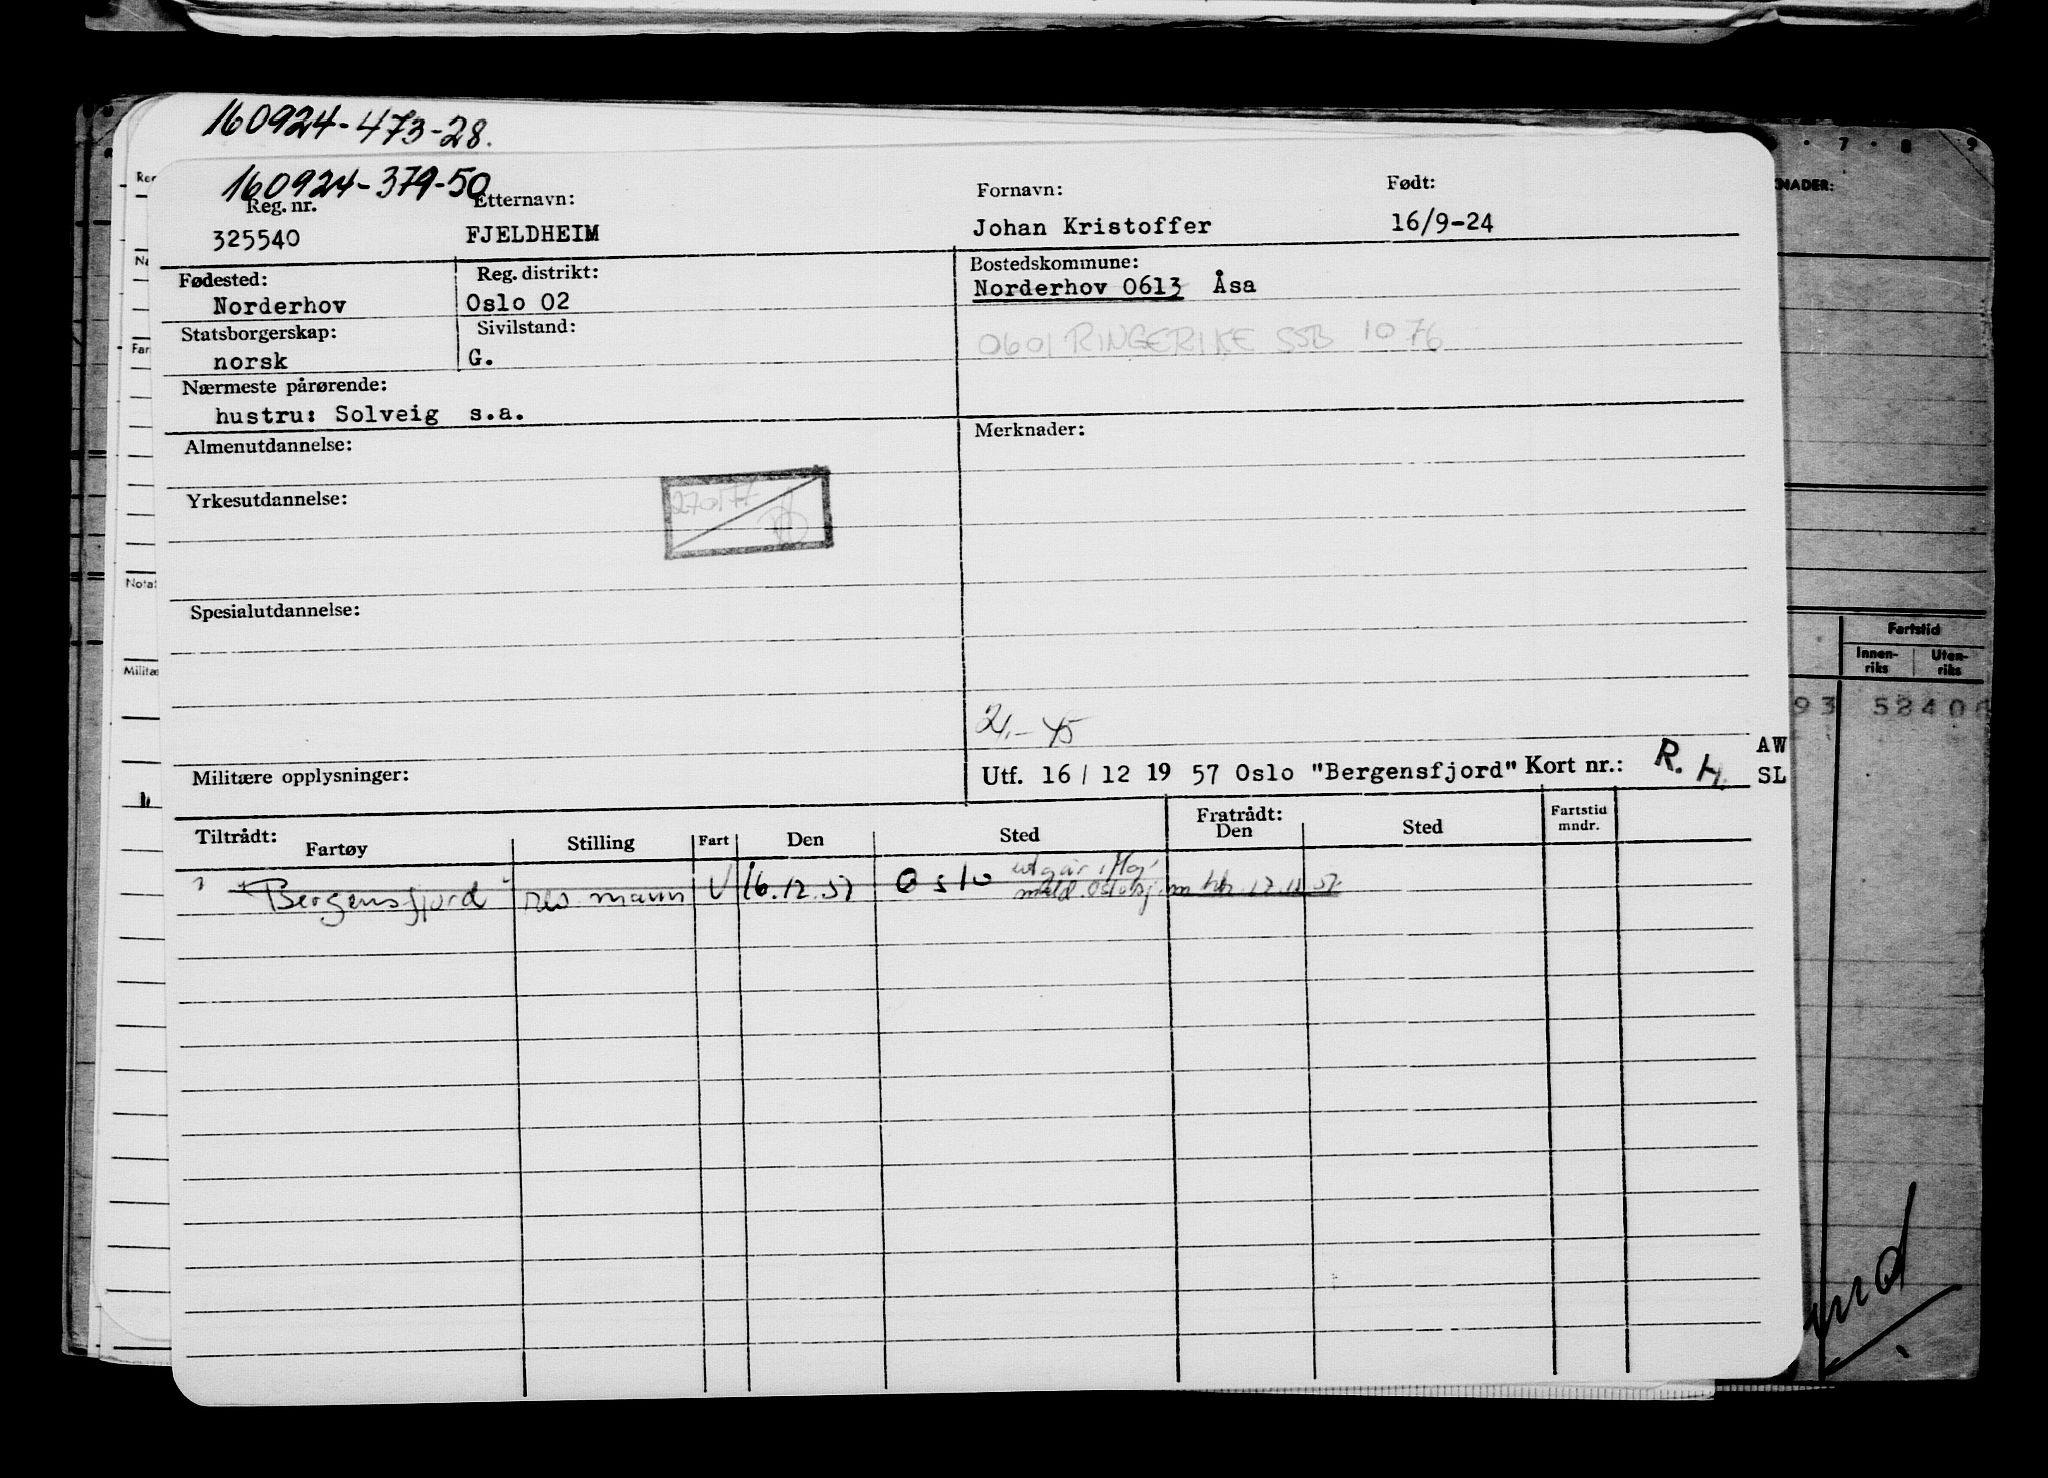 160924-473-28.
160924-379-50
Reg. nr. Etternavn: Fornavn: Født:
325540 FJELDHEIM Johan Kristoffer 16/9-24
Fødested: Reg. distrikt: Bostedskommune:
Norderhov Oslo 02 Norderhov 0613 Åsa
Statsborgerskap: Sivilstand:
norsk G. 0601 RINGERIKE SSB 1076
Nærmeste pårørende:
hustru: Solveig s.a.
Almenutdannelse: Merknader:
Yrkesutdannelse:
270177
Spesialutdannelse:
Militære opplysninger:
Utf. 16 / 12 19 57 Oslo "Bergensfjord" Kort nr.: R. H. AW
SL
Tiltrådt: Fratrådt:
Fartøy Stilling Fart Den Sted Den Sted Fartstid mndr.
"Bergensfjord" mann U 16.12.57 Oslo utgår iflg.
meld.
7 8 9
Fartstid
Innen-
riks
Uten-
riks
93 5240